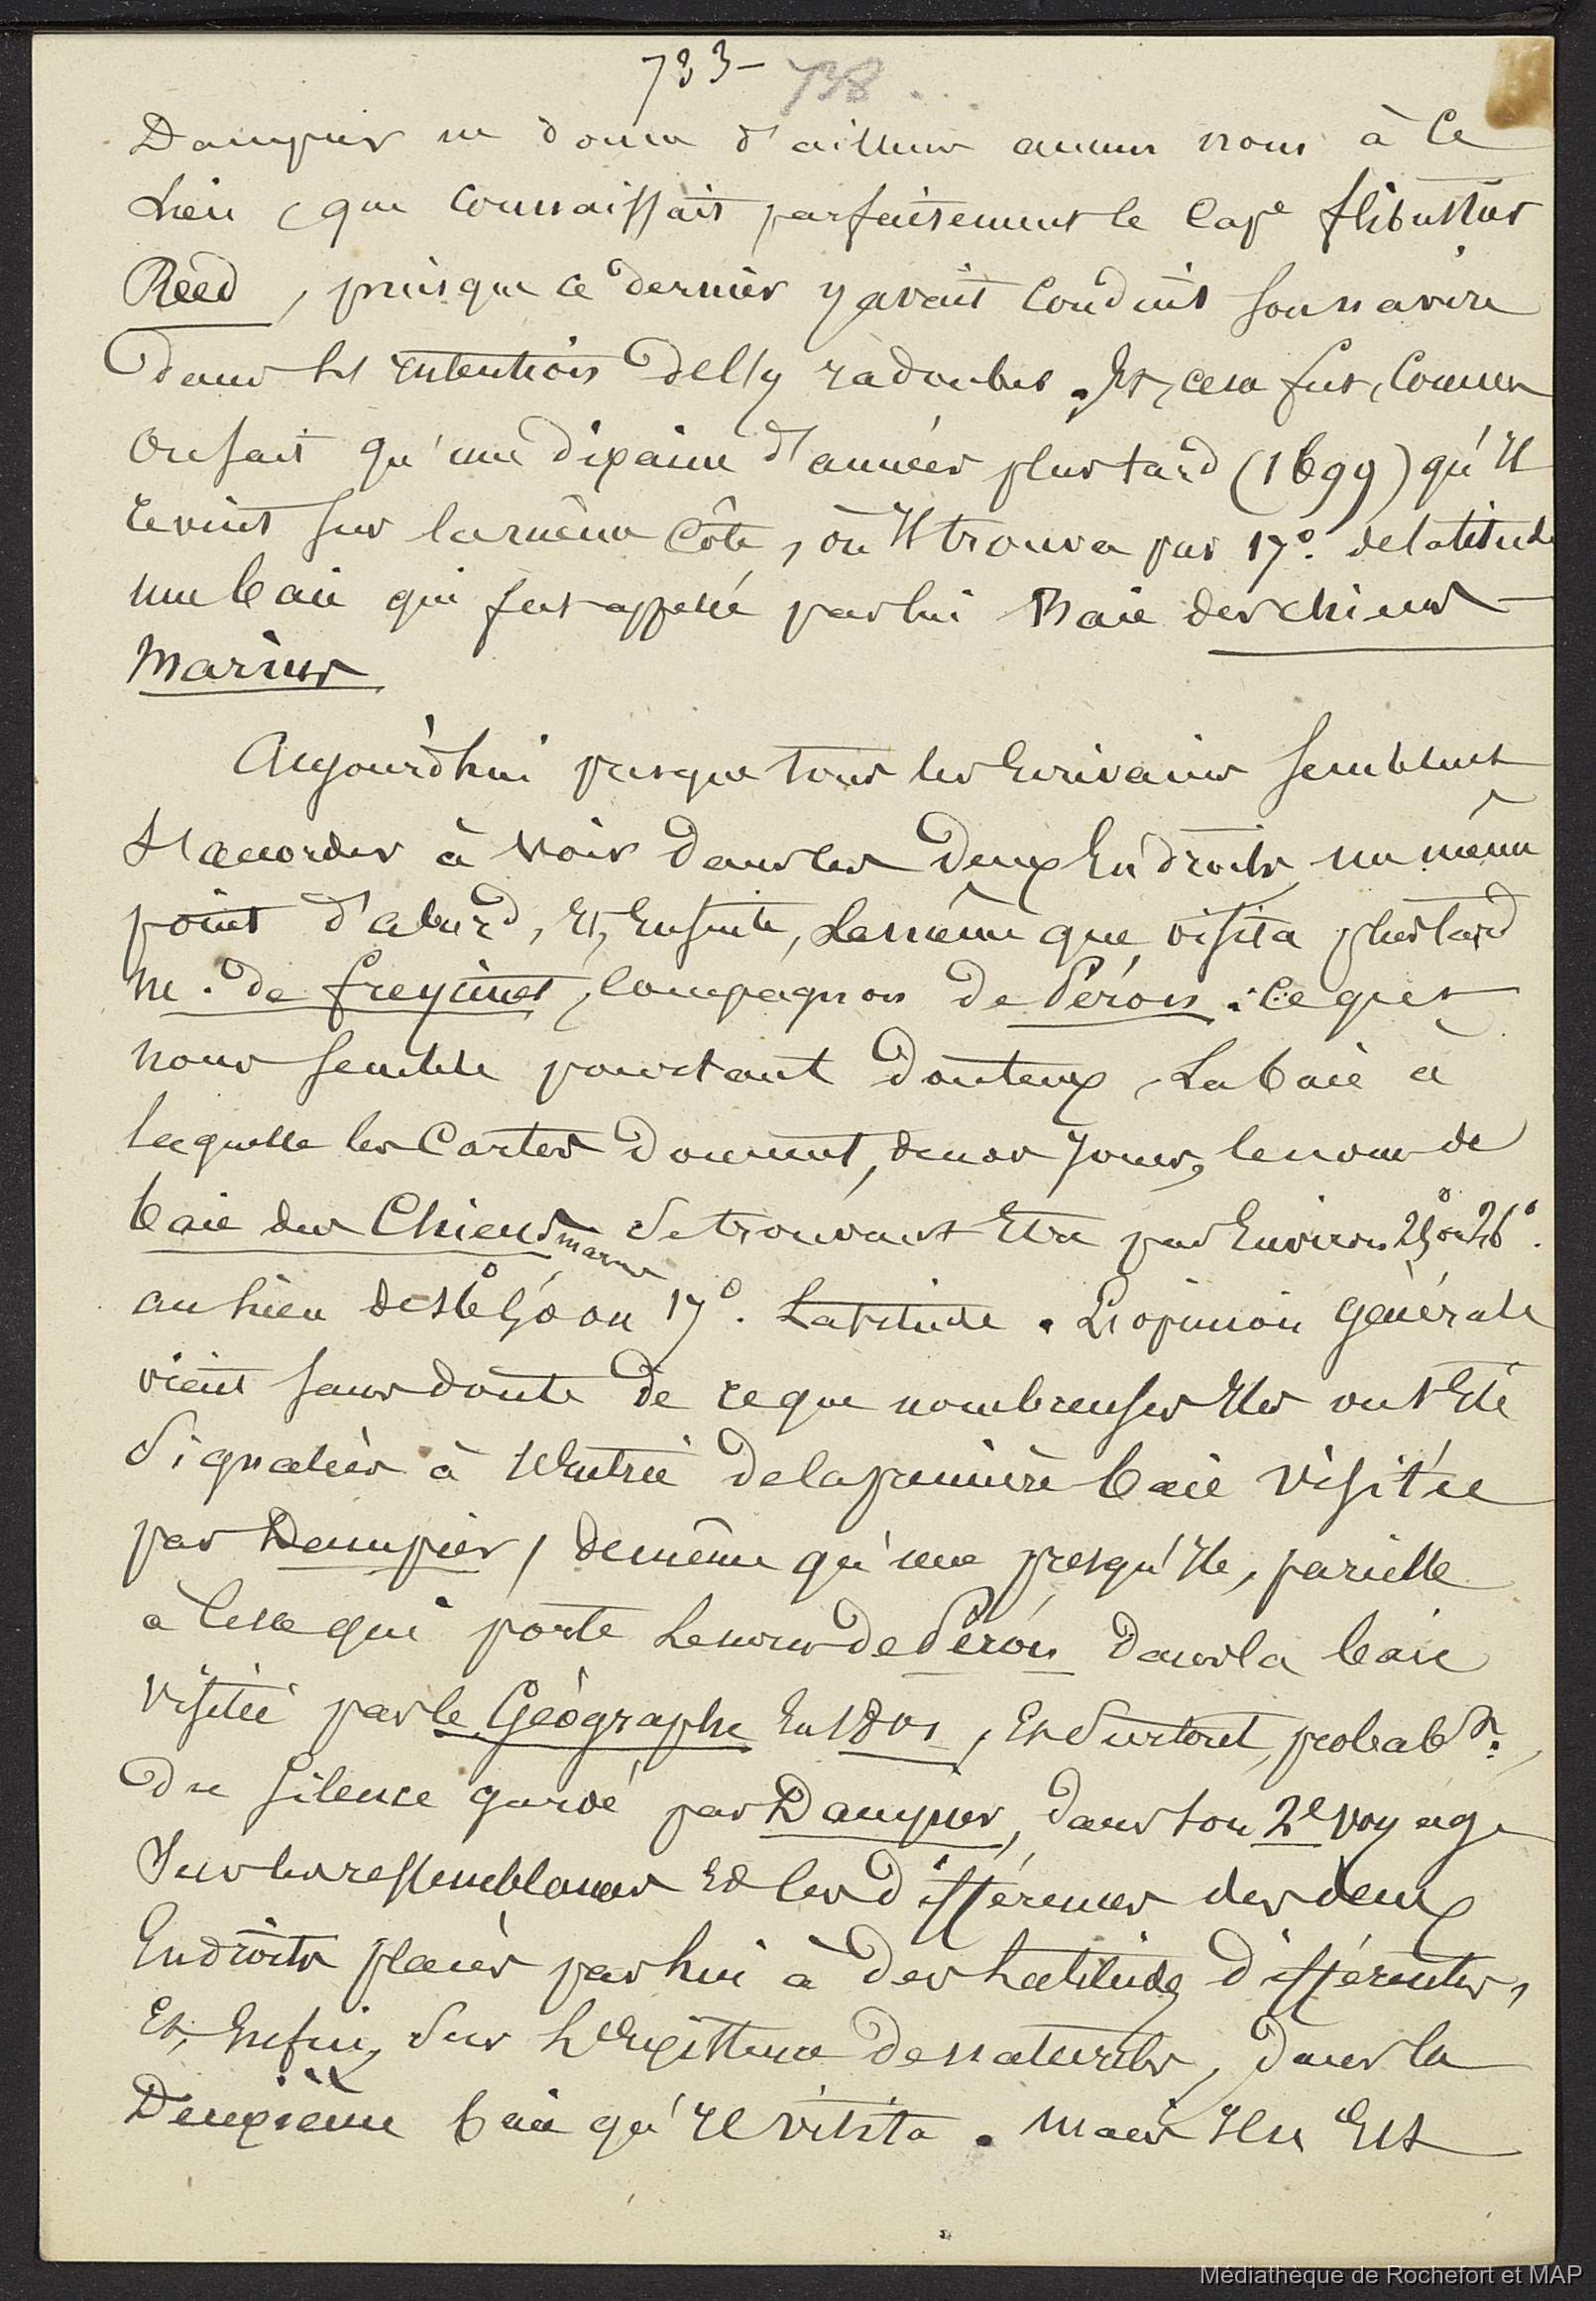 733- 738
Dampier ne donna d'ailleurs aucun nom à ce
Lieu, que connaissait parfaitement le Cape flibustier
Reed, puisque ce dernier y avait conduit son navire
dans les intentions de s'y radouber. Et, cela fut, comme
on sait qu'une dixaine d'années plus tard (1699) qu'Il
revint sur la même Côte, où Il trouva par 17°. de latitude
une baie qui fut appelée par lui Baie des chiens
Marins
Aujourd'hui presque tous les Ecrivains semblent
s'accorder à voir dans les deux Endroits, un même
point d'abord, Et, Ensuite, Le même que visita plus tard
M. de freycinet, compagnon de Péron : Ce qui
nous semble pourtant douteux, La baie à
laquelle les Cartes donnent, de nos Jours, le nom de
baie des Chiens marins se trouvant Etre par Environ 25° ou 26°.
au lieu de 16°50 ou 17°. Latitude. L'opinion générale
vient sans doute de ce que nombreuses Iles ont Eté
signalées à l'Entrée de la première baie visitée
par Dampier, de même qu'une presqu'Ile, pareille
à Celle qui porte Le nom de Péron dans la baie
visitée par le Géographe En 1801, Et Surtout, probabt.
du silence gardé par Dampier, dans son 2e voyage
Sur les ressemblances Et les différences des deux
Endroits placés par lui à des Latitudes différentes,
Et, Enfin, sur L'Existence de naturels, dans la
Deuxième baie qu'Il visita. Mais Il n'Est
Médiathèque de Rochefort et MAP